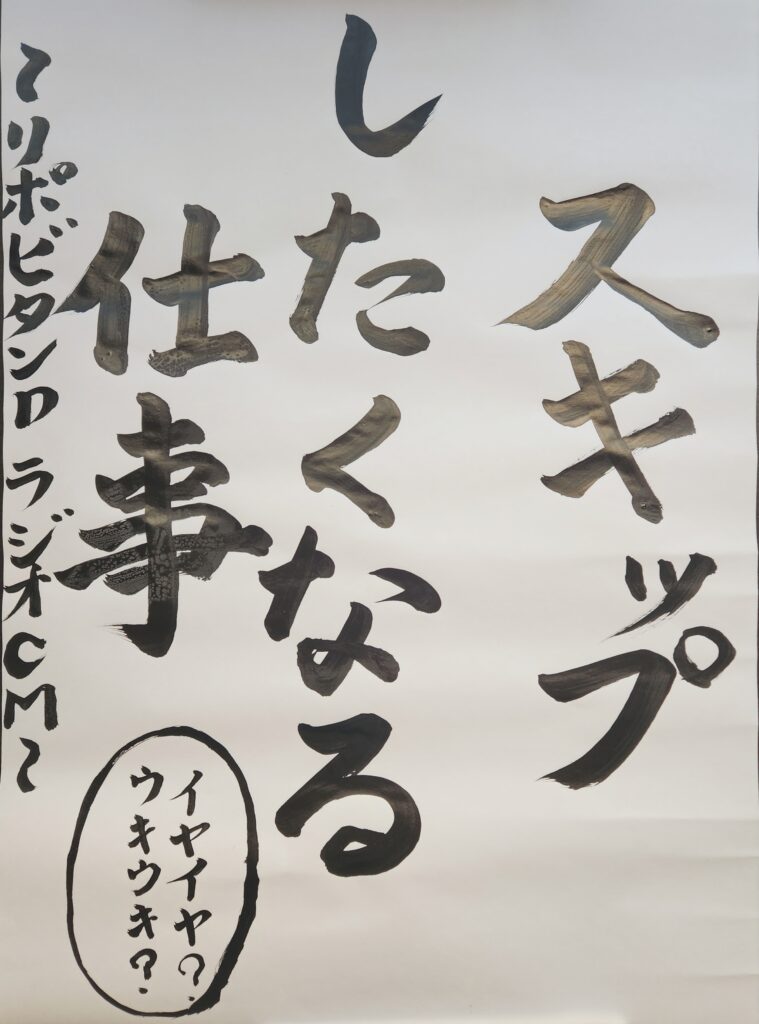 スキップ
したくなる
仕事
イヤイヤ?
ウキウキ?
~リポビタンD ラジオCM~